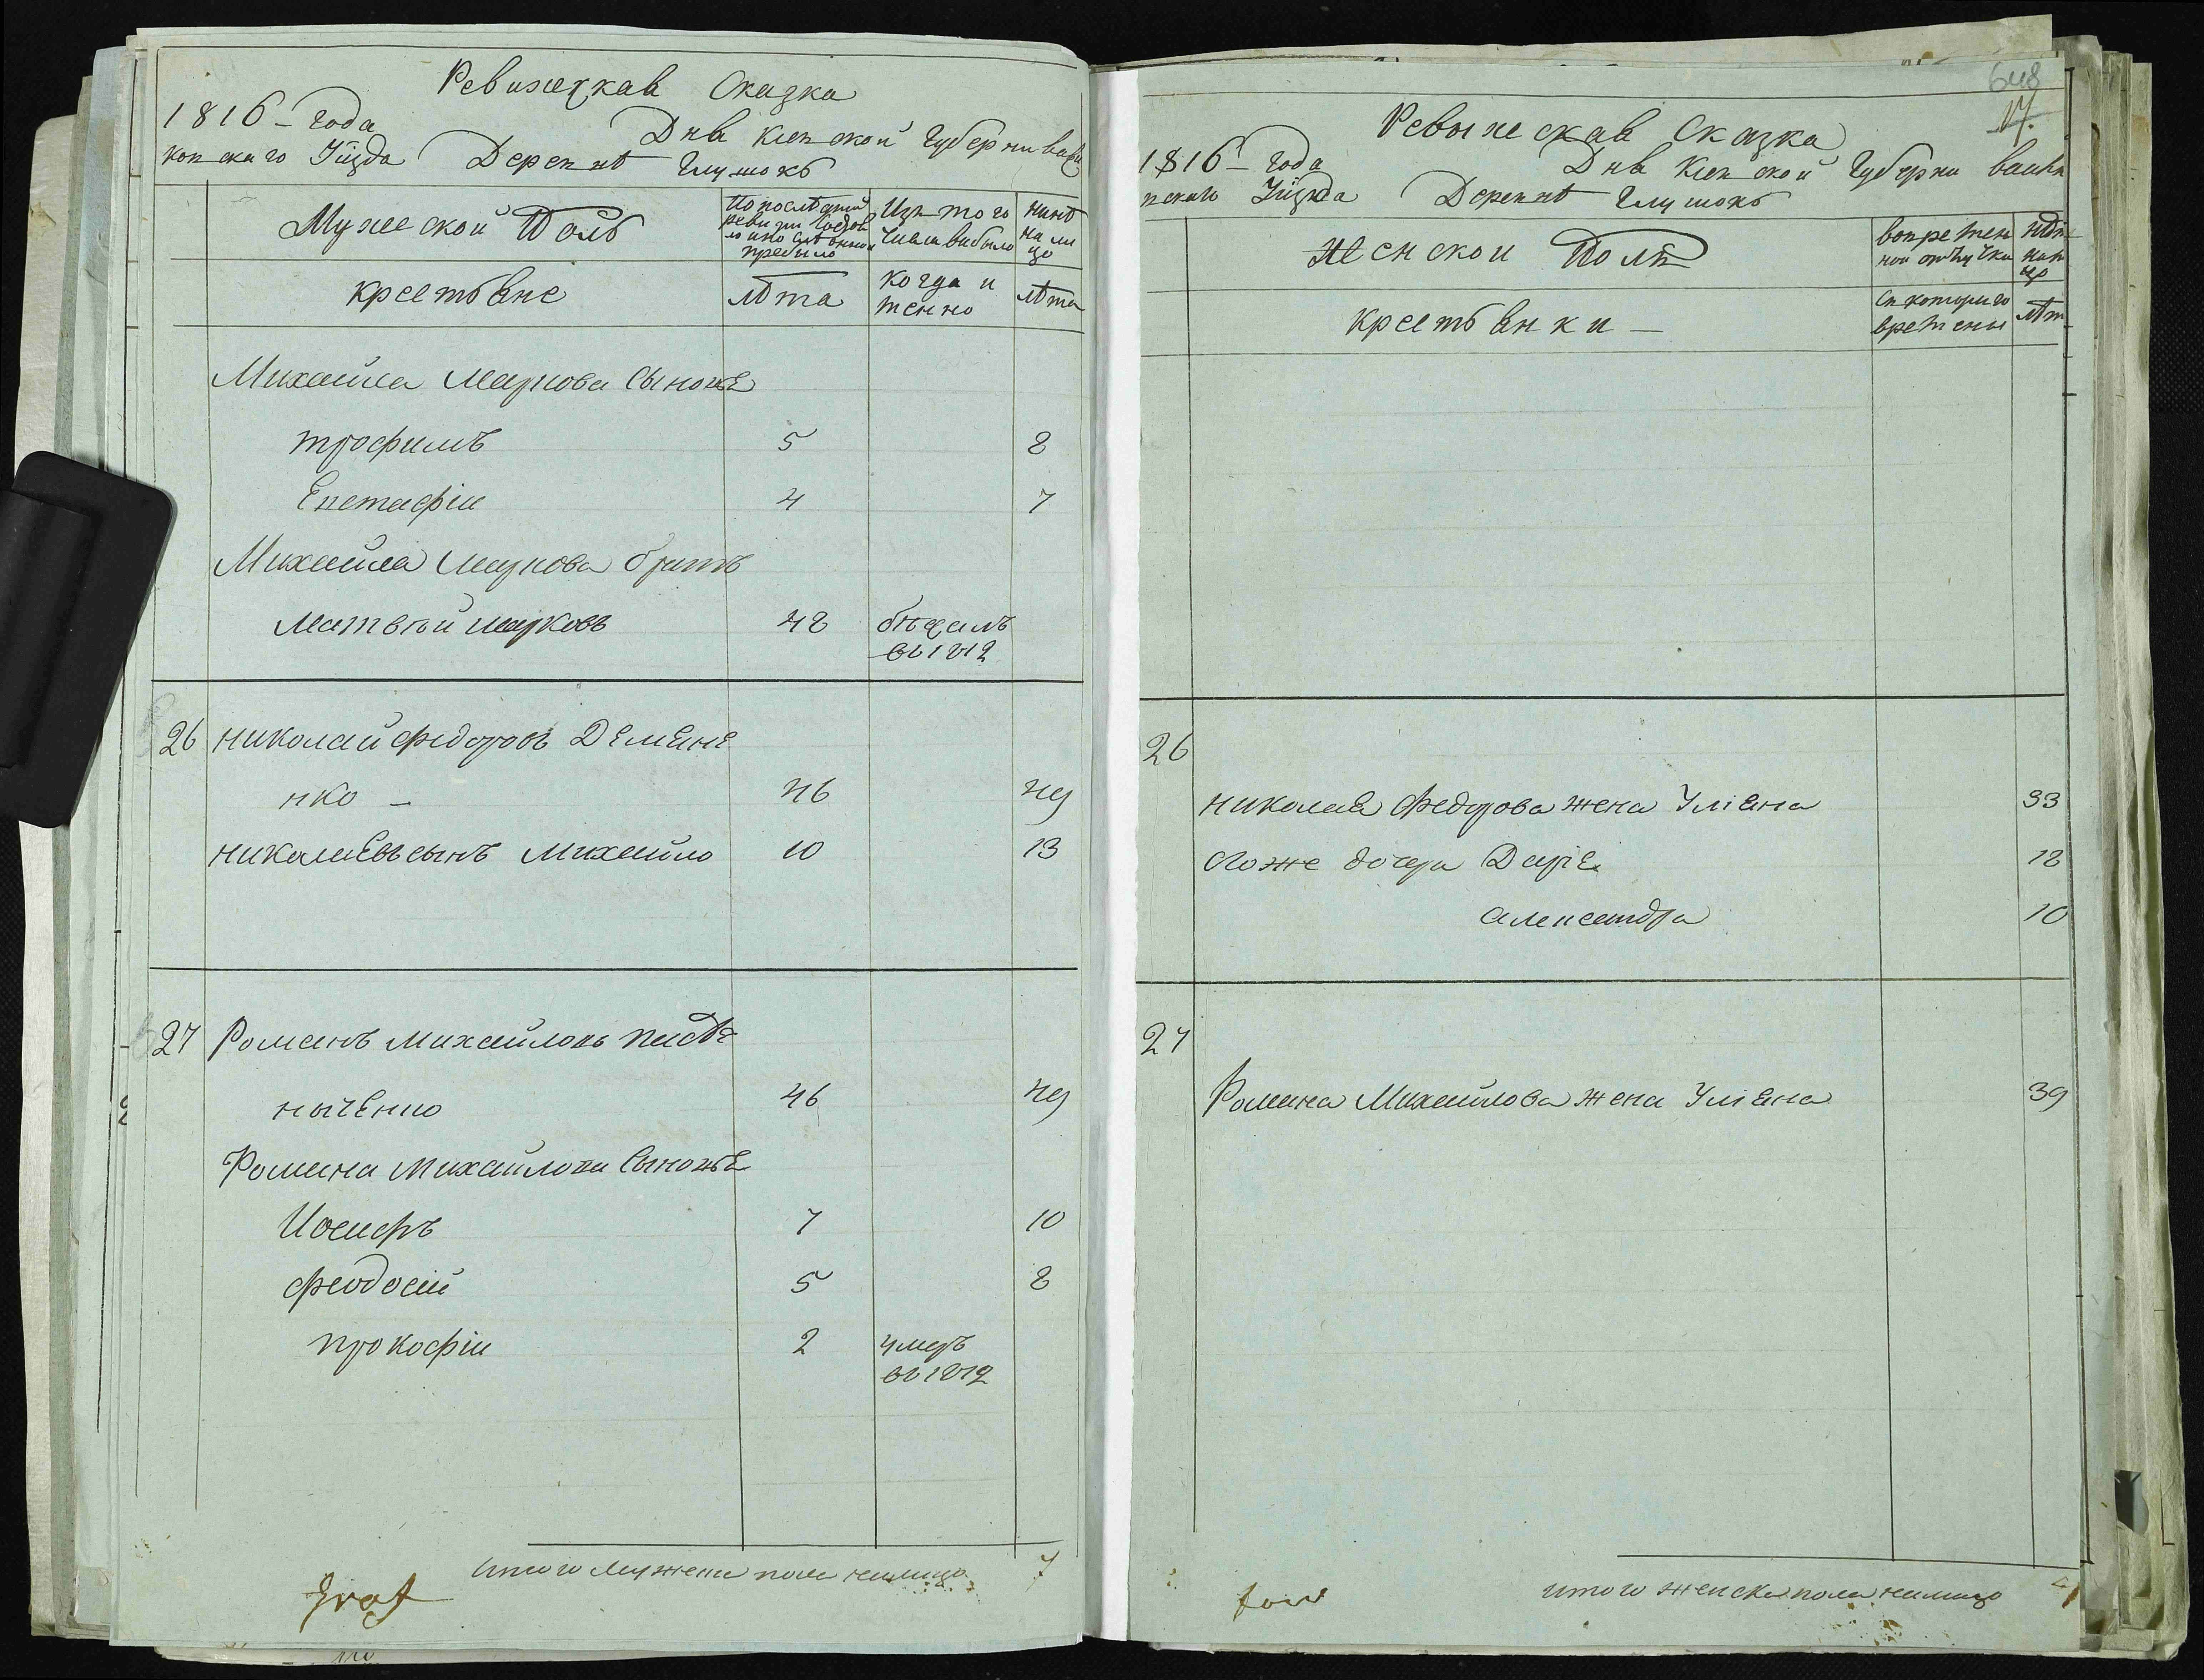 Ревижескаа Сказка
1816 - года Дня Киевской Губерни васи
ковскаго Уизда Деревнѣ Глушокъ
Мужеской Полъ
По последней ревизии состояло и после оной прибыло
Изъ того числа выбыло
нинѣ на лицо
крестьяне
лѣта
когда именно
лѣта
Михайла Маркова Сыновье
трофимъ 5 8
Евстафіи 4 7
Михайла Маркова братъ
Матвѣй марковъ 48 бѣжалъ
въ 1812
26 николай федоровъ Демене
нко - 46 49
николаевъ сынъ Михайло 10 13
27 Романъ Михайловъ
ниченко 46 49
Романа Михайлова Сыновье
Иосифъ 7 10
феодосій 5 8
прокофіи 2 умеръ
въ 1812
Итого мужеска пола налицо 7
Graf
648
17.
Ревижескаа Сказка
1816 - года Дня Киевской Губерни васил
вскаго Уизда Деревнѣ Глушокъ
Женской Полъ
вовременной отлучки
нинѣ налицо
крестьянки -
съ котораго времены
лѣт
26
николая Федорова жена Уліана 33
Его же дочери Даріе 18
александра 10
27
Романа Михайлова жена Уліана 39
итого женска пола налицо 4